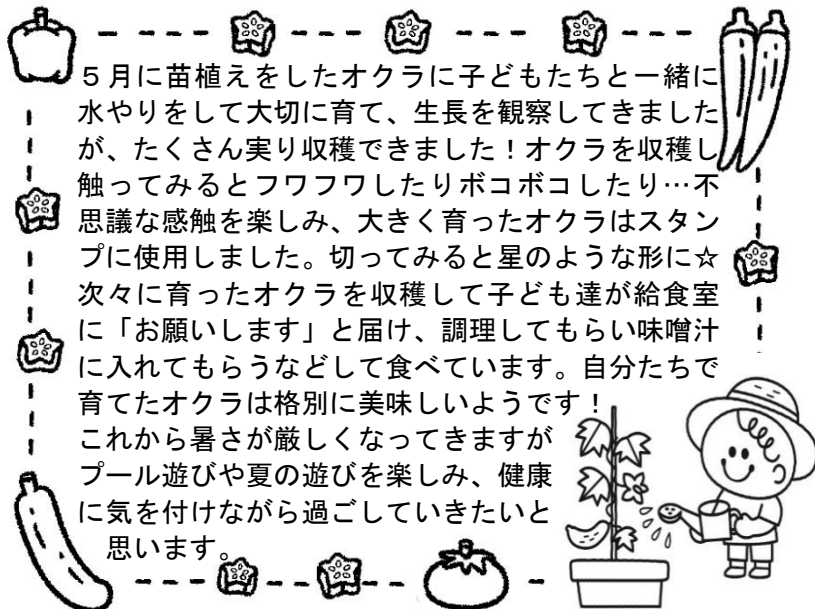 ５月に苗植えをしたオクラに子どもたちと一緒に
水やりをして大切に育て、生長を観察してきました
が、たくさん実り収穫できました！オクラを収穫し
触ってみるとフワフワしたりボコボコしたり…不
思議な感触を楽しみ、大きく育ったオクラはスタン
プに使用しました。切ってみると星のような形に☆
次々に育ったオクラを収穫して子ども達が給食室
に「お願いします」と届け、調理してもらい味噌汁
に入れてもらうなどして食べています。自分たちで
育てたオクラは格別に美味しいようです！
これから暑さが厳しくなってきますが
プール遊びや夏の遊びを楽しみ、健康
に気を付けながら過ごしていきたいと
思います。